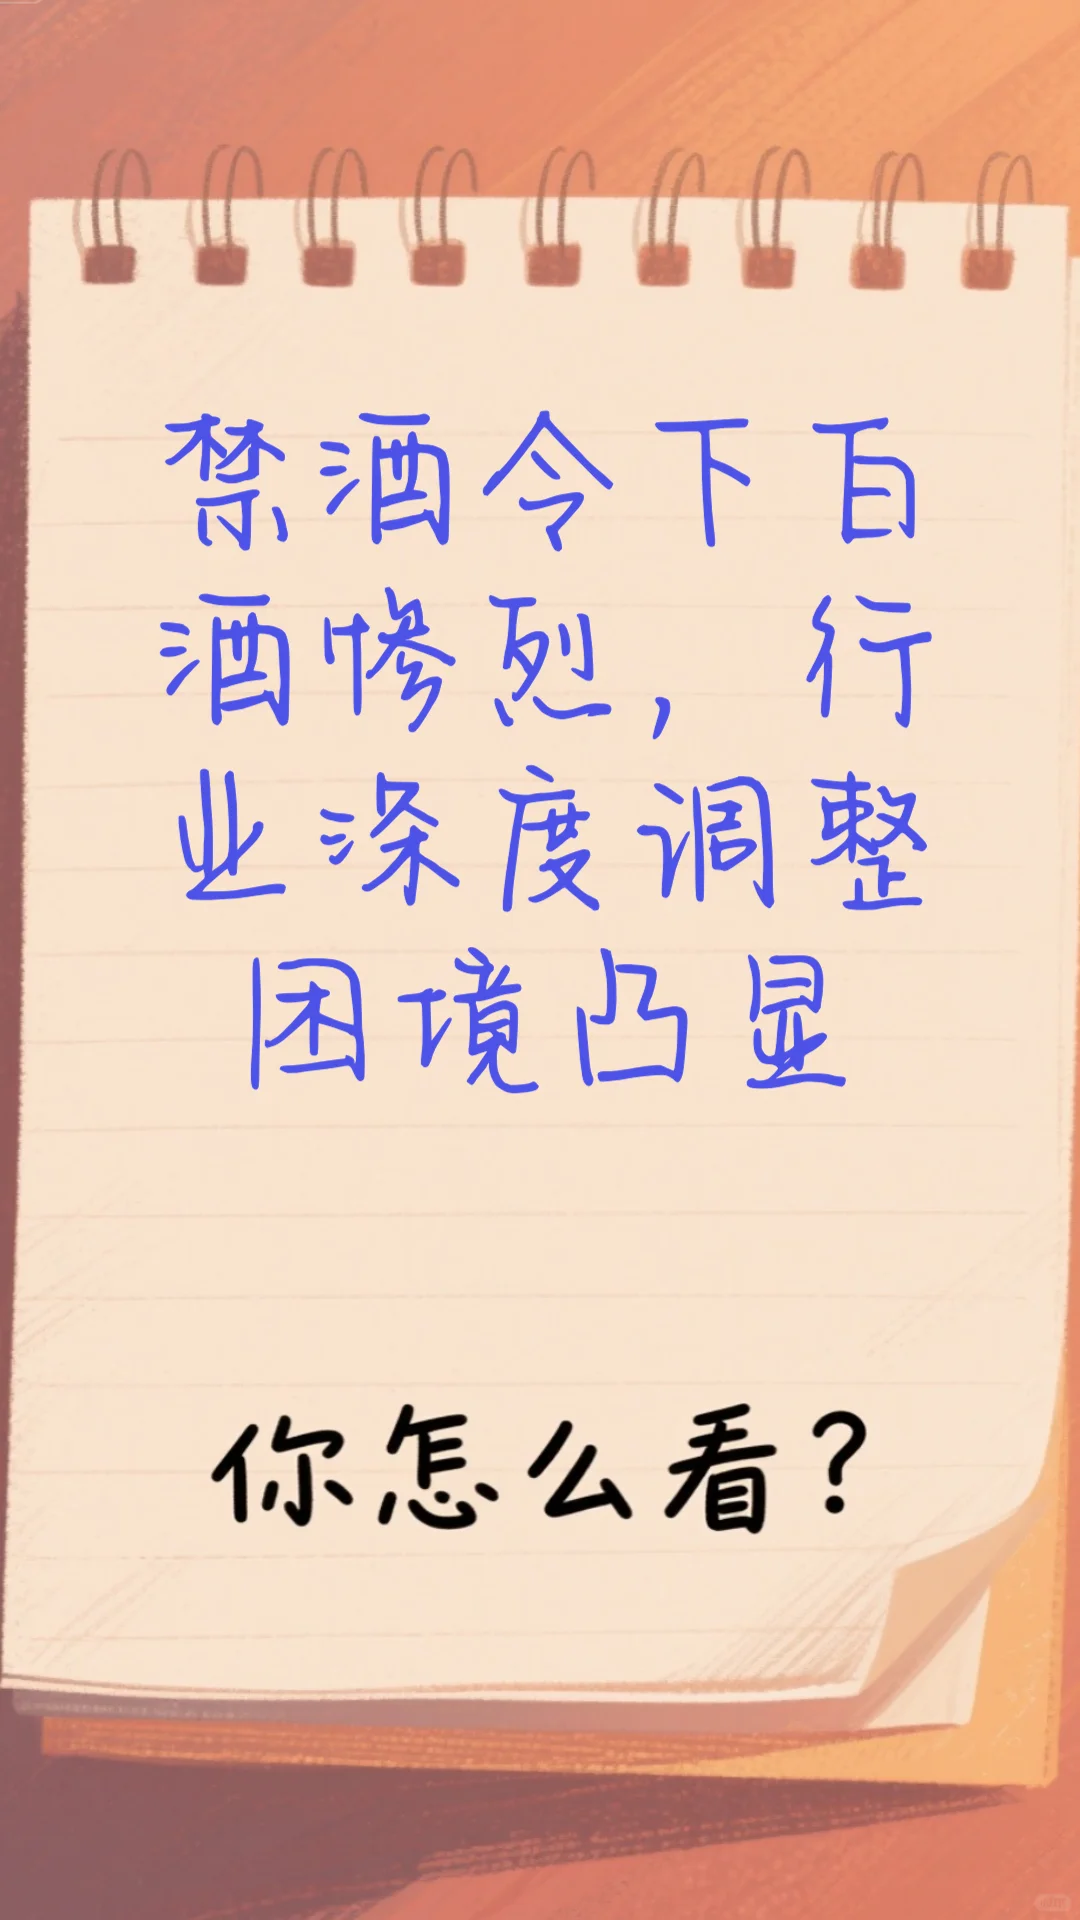 禁酒令下白
酒惨烈，行
业深度调整
困境凸显
你怎么看？